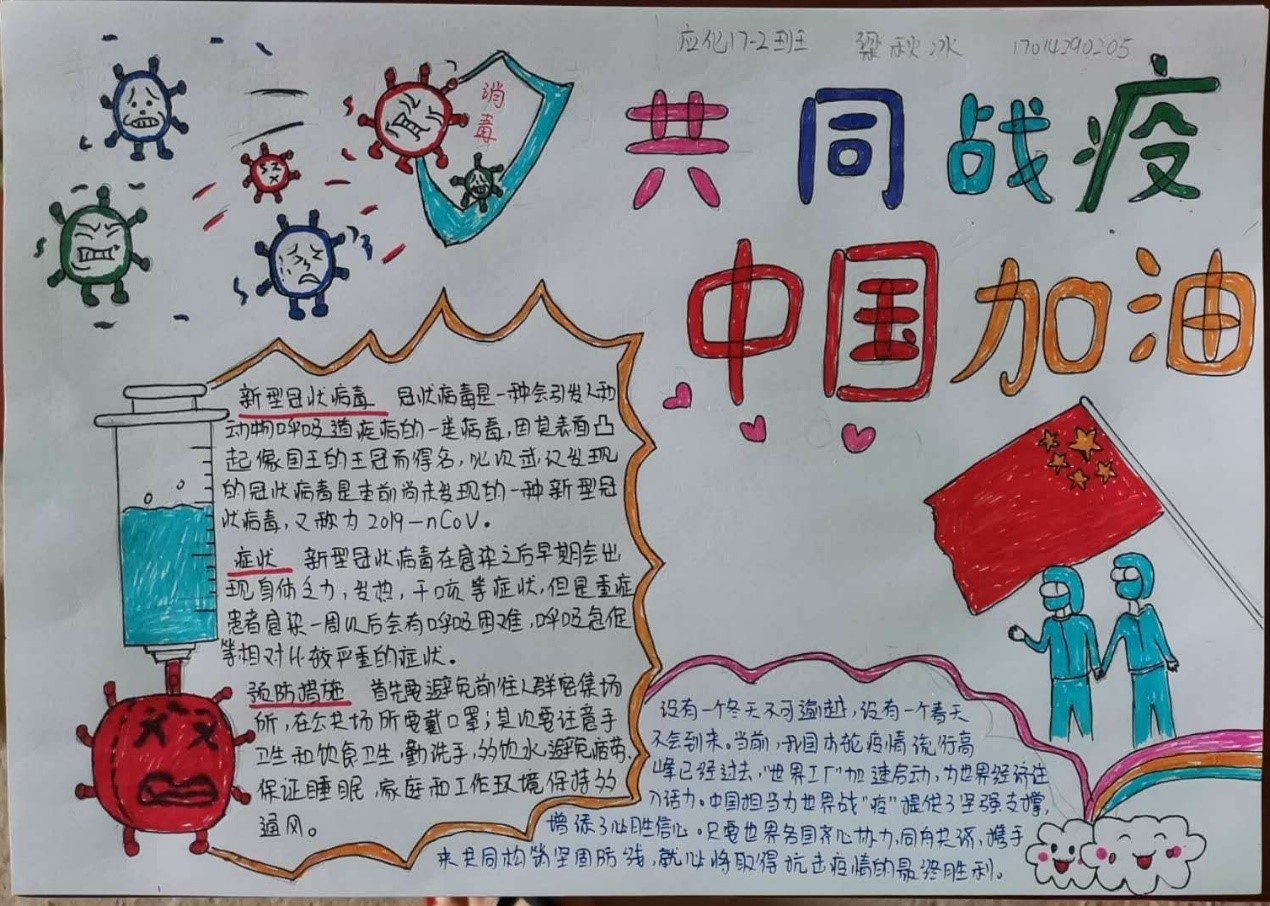 应化17-2班 梁秋冰 17014290205
消
毒
共同战疫
中国加油
新型冠状病毒 冠状病毒是一种会引发人和
动物呼吸道疾病的一类病毒,因其表面凸
起像国王的王冠而得名,此次武汉发现
的冠状病毒是李前尚未发现的一种新型冠
状病毒,又称为2019-nCoV。
症状 新型冠状病毒在感染之后早期会出
现身体乏力,发热,干咳等症状,但是重症
患者感染一周以后会有呼吸困难,呼吸急促
等相对比较严重的症状。
预防措施 首先要避免前往人群密集场
所,在公共场所要戴口罩;其次要注意手
卫生和饮食卫生,勤洗手,多饮水,避免疲劳,
保证睡眠,家庭和工作环境保持多
通风。
没有一个冬天不可逾越,没有一个春天
不会到来。当前,我国本轮疫情流行高
峰已经过去,"世界工厂"加速启动,为世界经济注
入活力。中国担当为世界战"疫"提供了坚强支撑,
增添了必胜信心。只要世界各国齐心协力,同舟共济,携手
来共同构筑坚固防线,就必将取得抗击疫情的最终胜利。